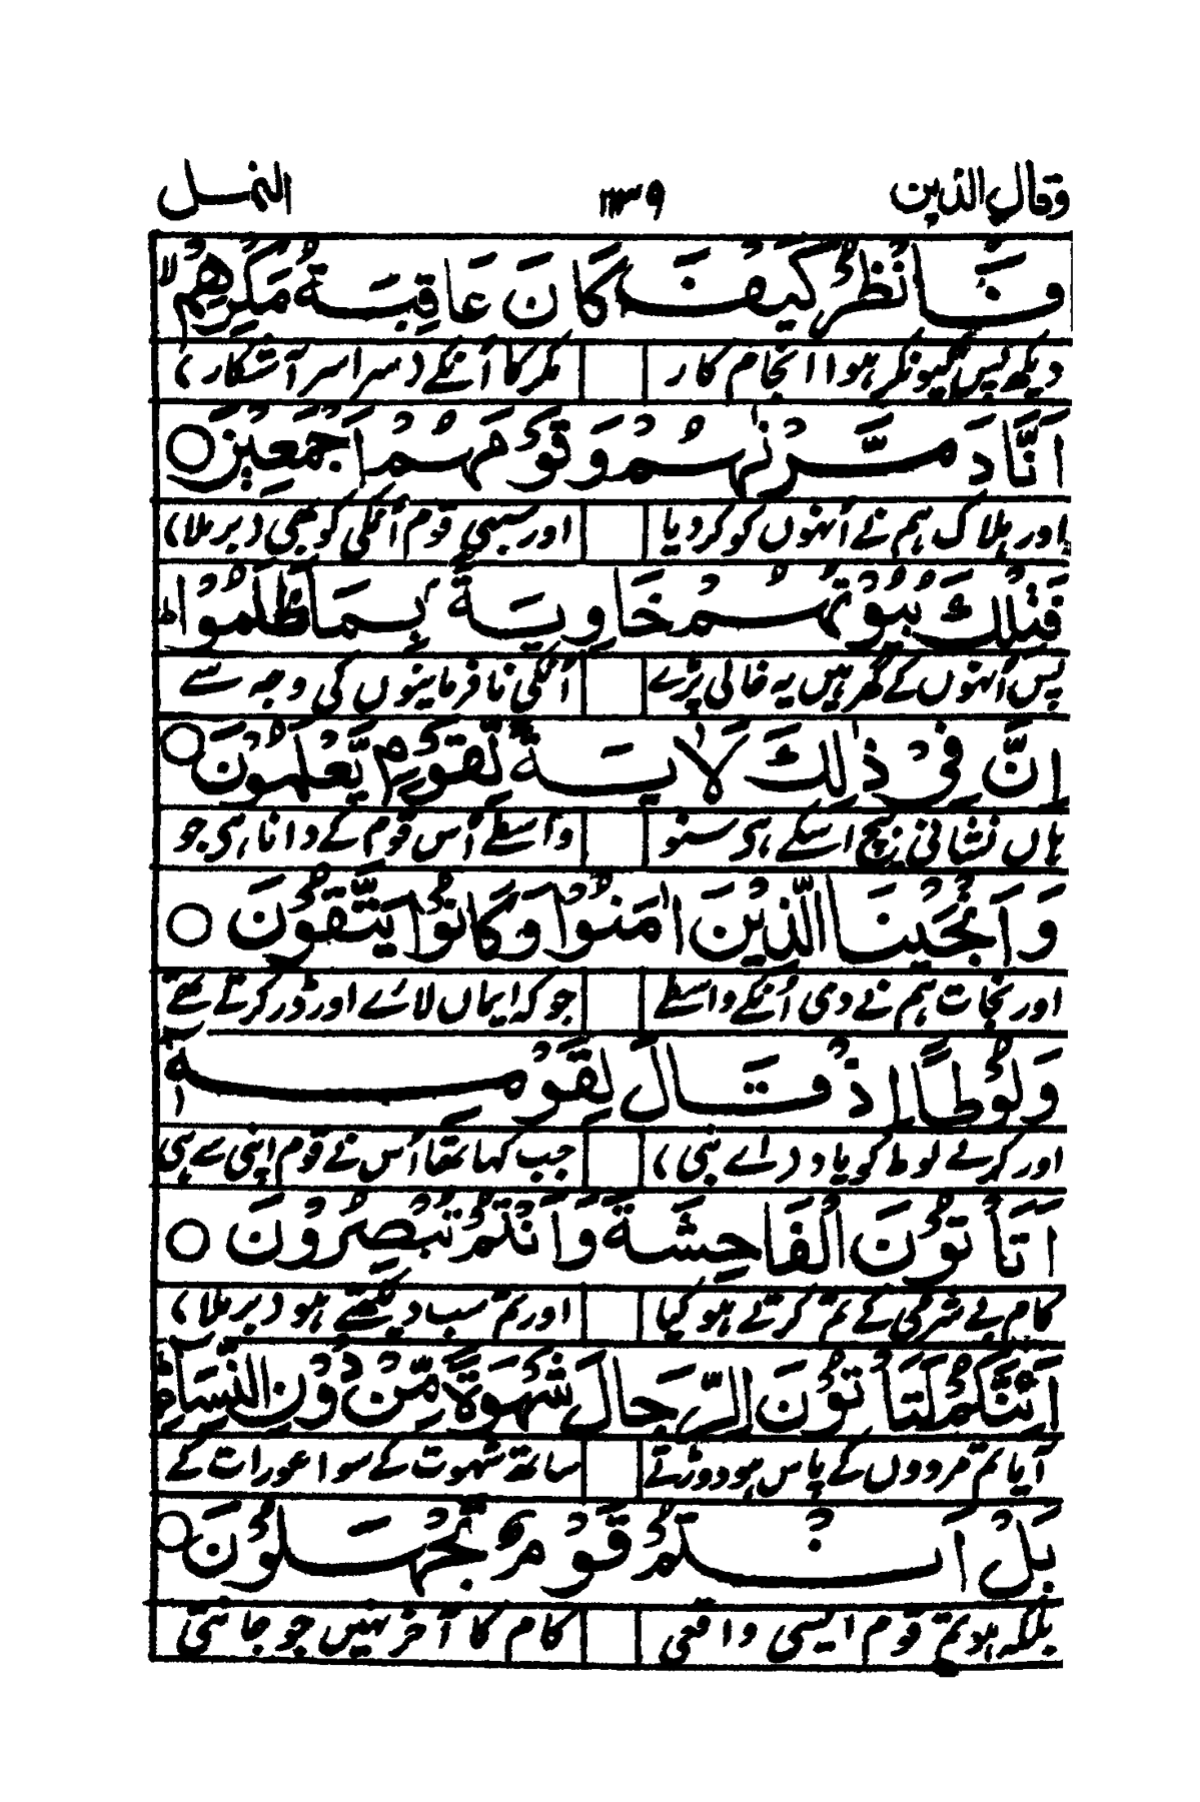 وقال الذین ۱۳۹ النمـل
فَانْظُرْ كَیْفَ كَانَ عَاقِبَةُ مَكْرِهِمْ ۙ
دیکھ پس کیونکر ہوا انجام کار مکر کا اُنکے (سراسر آشکار)
اَنَّا دَمَّرْنٰهُمْ وَقَوْمَهُمْ اَجْمَعِیْنَ ○
اور ہلاک ہم نے اُنہوں کو کر دیا اور سبھی قوم اُنکی کو بھی (برملا)
فَتِلْكَ بُیُوْتُهُمْ خَاوِیَةًۢ بِمَا ظَلَمُوْا ؕ
پس اُنہوں کے گھر ہیں یہ خالی پڑے اُنکی نافرمانیوں کی وجہ سے
اِنَّ فِیْ ذٰلِكَ لَاٰیَةً لِّقَوْمٍ یَّعْلَمُوْنَ ○
ہاں نشانی بیچ اسکے ہی سنو واسطے اُس قوم کے دانا ہی جو
وَاَنْجَیْنَا الَّذِیْنَ اٰمَنُوْا وَكَانُوْا یَتَّقُوْنَ ○
اور نجات ہم نے دی اُنکے واسطے جو کہ ایماں لائے اور ڈر کرتے تھے
وَلُوْطًا اِذْ قَالَ لِقَوْمِهٖۤ
اور کرلے لوط کو یاد (اے نبی) جب کہا تھا اُس نے قوم اپنی سے ہی
اَتَاْتُوْنَ الْفَاحِشَةَ وَاَنْتُمْ تُبْصِرُوْنَ ○
کام بے شرمی کے تم کرتے ہو کیا اور تم سب دیکھتے ہو (برملا)
اَئِنَّكُمْ لَتَاْتُوْنَ الرِّجَالَ شَهْوَةً مِّنْ دُوْنِ النِّسَآءِ ؕ
آیا تم مردوں کے پاس ہو دوڑتے ساتھ شہوت کے سوا عورات کے
بَلْ اَنْتُمْ قَوْمٌ تَجْهَلُوْنَ ○
بلکہ ہو تم قوم ایسی واقعی کام کا آخر نہیں جو جانتی